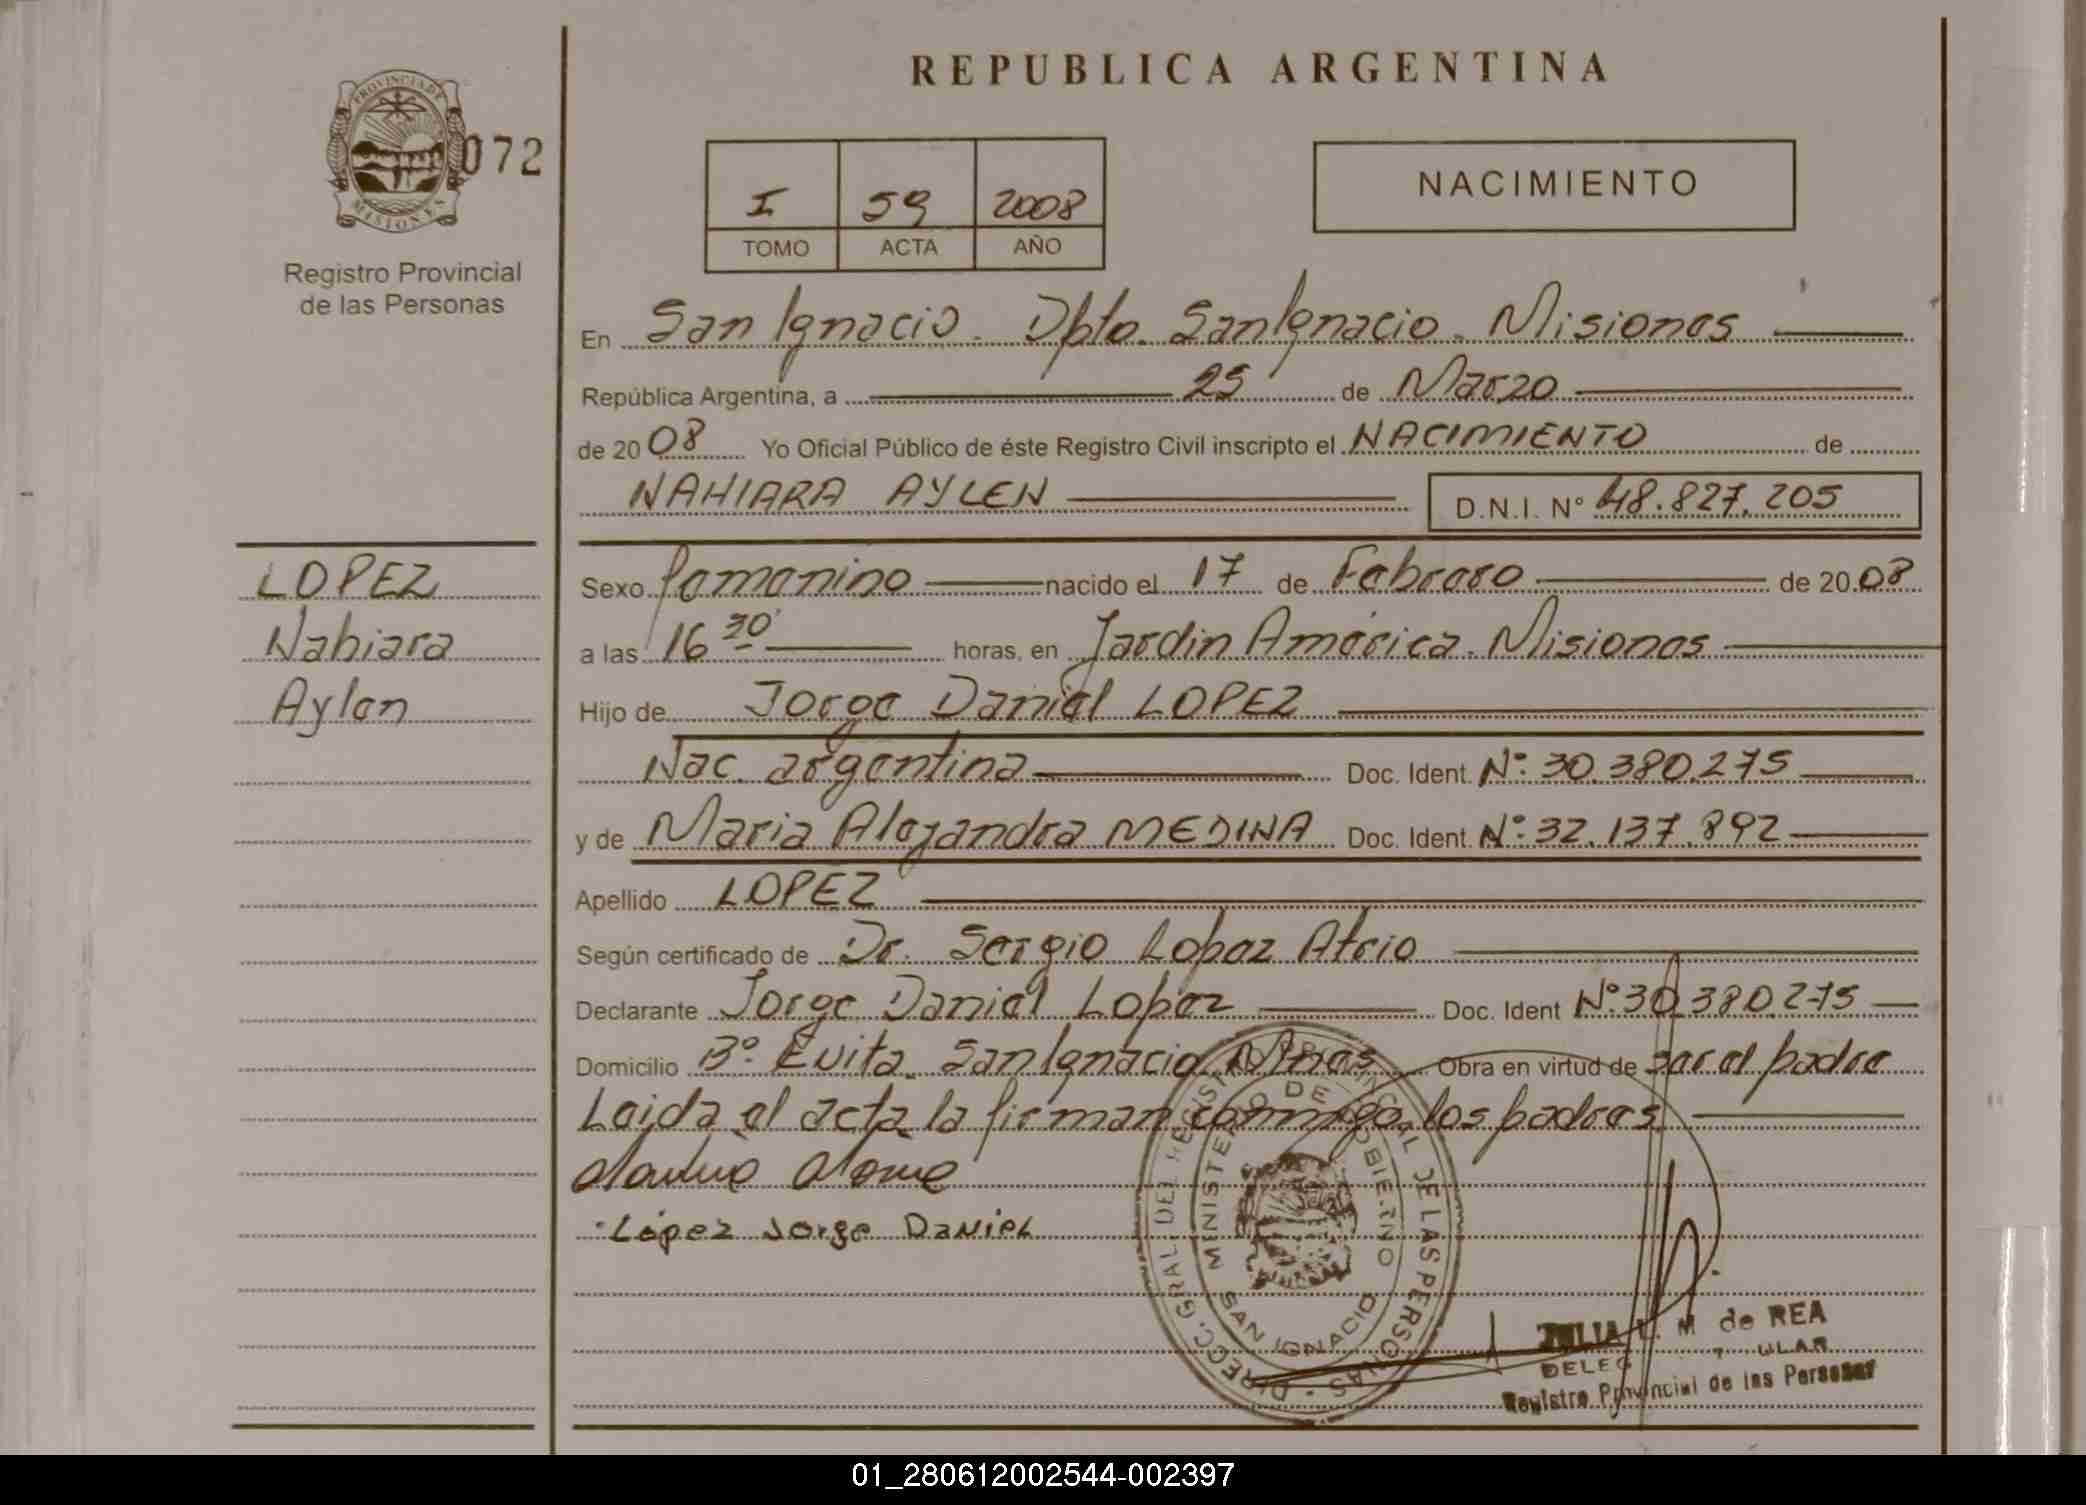 REPUBLICA ARGENTINA
PROVINCIA DE
MISIONES
072
Registro Provincial
de las Personas
I 59 2008
TOMO ACTA AÑO
NACIMIENTO
En San Ignacio. Dpto. San Ignacio. Misiones
República Argentina, a 25 de Marzo
de 2008 Yo Oficial Público de éste Registro Civil inscripto el NACIMIENTO de
NAHIARA AYLEN D.N.I. N° 48.827.205
LOPEZ
Nahiara
Aylen
Sexo femenino nacido el 17 de Febrero de 2008
a las 16 30' horas, en Jardin América. Misiones
Hijo de Jorge Daniel LOPEZ
Nac. argentina Doc. Ident. N°: 30.380.275
y de Maria Alejandra MEDINA Doc. Ident. N°: 32.137.892
Apellido LOPEZ
Según certificado de Dr. Sergio Lopez Atrio
Declarante Jorge Daniel Lopez Doc. Ident N° 30.380.275
Domicilio B° Evita. San Ignacio Mnes Obra en virtud de ser el padre
Leida el acta la firman conmigo los padres.
López Jorge Daniel
DIRECC. GRAL. DEL REGISTRO PROVINCIAL DE LAS PERSONAS
MINISTERIO DE GOBIERNO
SAN IGNACIO
JULIA L. M de REA
Registro Provincial de las Personas
01_280612002544-002397